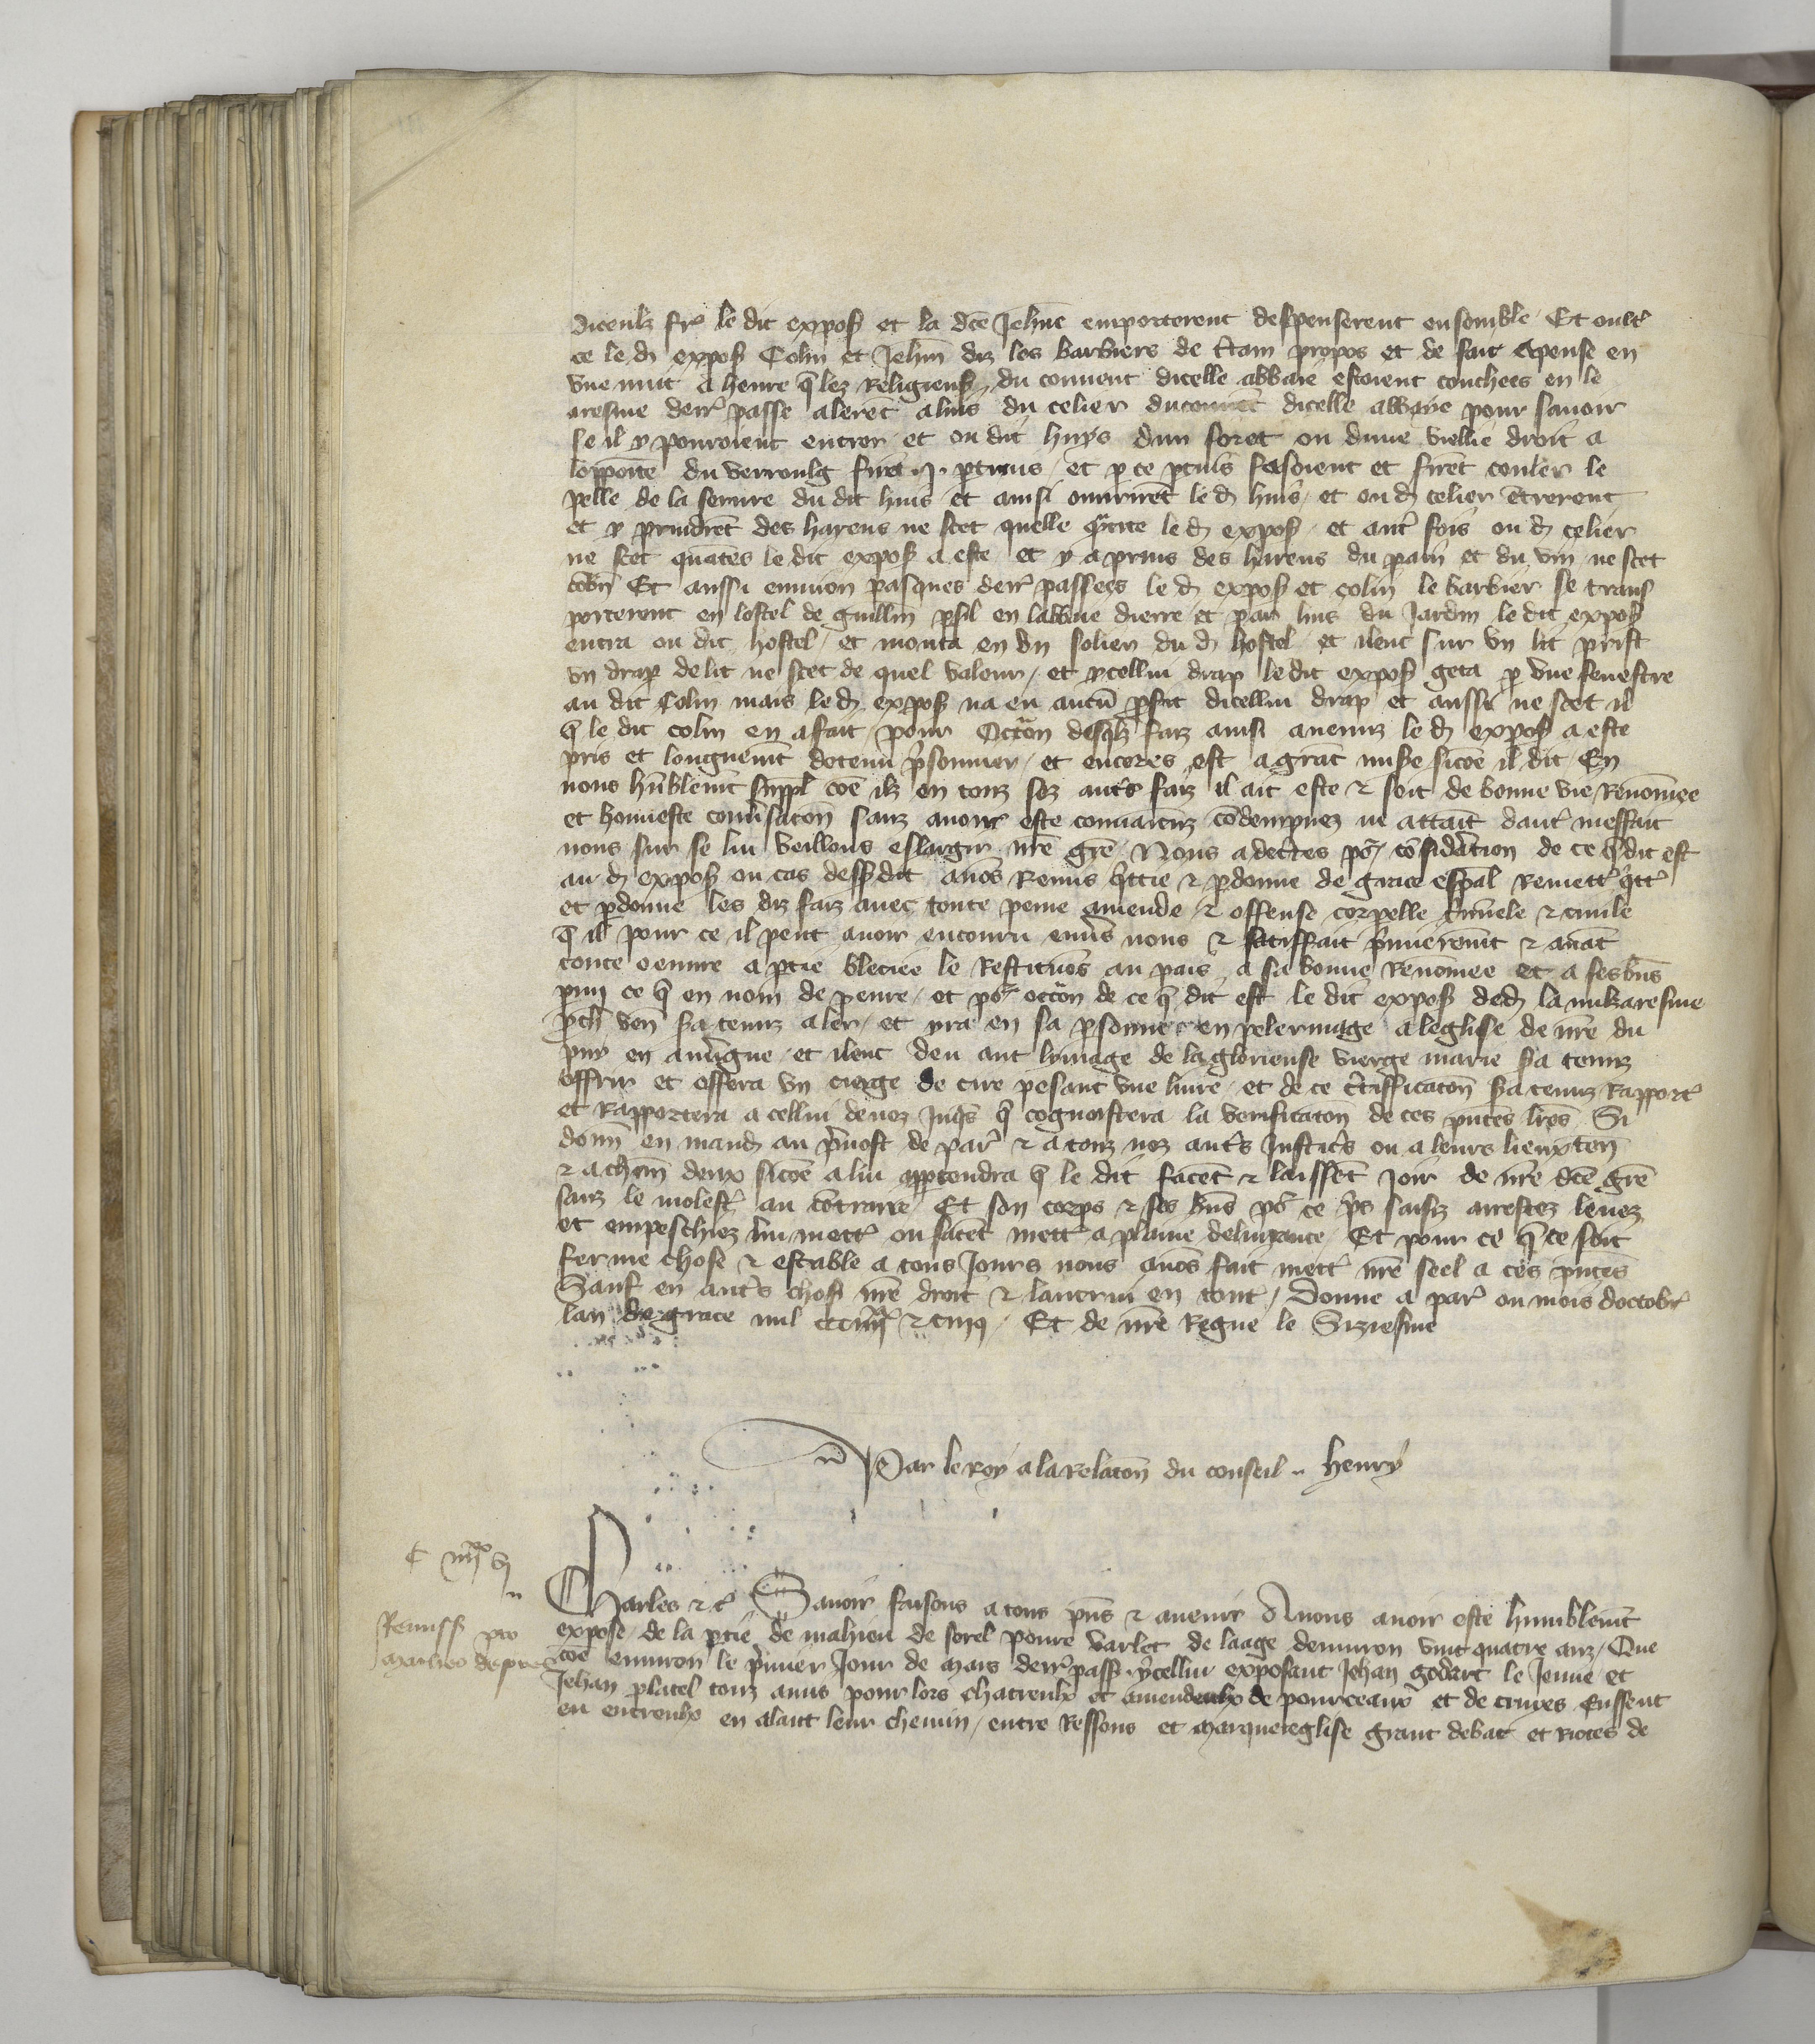 Diceulx fr͛ le dit expos et la dc̄e Jehn̄e emporterent despenserent ensemble / Et oult͛
ce le d expos Colin et Jehan diz les barbiers de c̄tain propos et de fait apense en
vne nuit a heure q̄ lez Religieus du conuent dicelle abbaie estoient couchees en le
aresme derr͛ passe alerēt a luis du celier du couuēt dicelle abbaye pour sauoir
se il y pourroient entrer et ou dit huys dun foret ou dune viellie droit a
lopposite du verroulg firēt .j. ptruis / et p ce ptuis fesoient et firēt couler le
pelle de la serrure du dit huis et ainsi ouurirēt le d huis / et ou d celier ētrerent
et y prindrēt des harens ne scet quelle q̄ntite le d expos / et aut͛ fois ou d celier
ne scet quātes le dit expos a este / et y a prins des harens du pain et du vin ne scet
cōbn̄ Et aussi enuiron pasques derr͛ passees le d expos et colin le barbier se trans
porterent en lostel de guillin psil en labbaie dierre et par luis du Jardin le dit expos
entra ou dit hostel / et monta en vn solier du d hostel / et ilenc sur vn lit prist
vn drap de lit ne scet de quel valeur / et ycellui drap le dit expos geta p vne fenestre
au dit Colin mais le d expos na eu aucū pfit dicellui drap et aussi ne scet il
q̄ le dit colin en a fait / pour Occōn desqlx faiz ainsi auenuz le d expos a este
pris et longuemt̄ detenu p̄sonnier / et encores est a grāt mise sicōe il dit / En
nous hūblemt̄ suppl cōe ilz en touz sez aut͛s faiz il ait este & soit de bonne vie Renōmee
et honneste conu͛sacōn sanz auoir este conuaicuz cōdempnez ne attaīt daut͛ meffait
nous sur se lui veillons eslargir nr̄e gr̄e / Nous adecertes po͛ cōsid͛acion de ce q̄ dit est
au d expos ou cas dessdit auōs Remis q̄ttie & pdonne de grace espal Remett͛ q̄tt͛
et pdonne les diz faiz auec toute peine amende & offense corpelle c͛minele & ciuile
q̄ il pour ce il peut auoir encouru enu͛s nous & satiffait p̄mieremt̄ & auāt
toute oeuure a ptie bleciee le Restituōs au pais a sa bonne Renōmee et a ses bn̄s
pmy ce q̄ en nom de penre / et po͛ occōn de ce q̄ dit est le dit expos ded la mikaresme
p̄ch ven͛ sa tenuz aler / et yra en sa psonne en pelerinage a leglise de nr̄e du
puy en auūgne / et ilenc deu ant lymage de la glorieuse vierge marie sa tenuz
offrir et offera vn cierge de cire pesant vne liure / et de ce c̄tifficacōn sa tenuz Rapport͛
et Rapportera a cellui de noz Jug͛s q̄ cognoistera la verificacōn de ces p̄ntes lr̄es / Si
donn̄ en mand au p̄uost de par͛ & a touz noz aut͛s Justic͛s ou a leurs lieuxten̄
& a chūn deulx sicōe a lui apptendra q̄ le dit facēt & laissēt Joir de nr̄e dc̄e gr̄e
sanz le molest͛ au cōtraire / Et son corps & ses bn̄s po͛ ce p͛s saisiz arrestez leuez
et empeschiez lui mett͛ ou facēt mett͛ a plaine deliurance / Et pour ce q̄ ce soit
ferme chose & estable a tous Jours nous auōs fait mett͛ nr̄e seel a ces p̄ntes
Sauf en aut͛s chos nr̄e droit & lautrui en tout / Donne a par͛ ou mois doctobr͛
lan de grace mil ccc iiijxx & cinq / Et de nr̄e Regne le Siziesme
Par le Roy a la Relacōn du conseil .. henry
C iiijxx vj
Remiss pro
Maheo de sorel
Charles &c͛ Sauoir faisons a tous pn̄s & auenir Auons auoir este humblemt̄
expose de la ptie de mahieu de sorel poure varlet de laage denuiron vint quatre anz / Que
cōe enuiron le p̄mier Jour de mars derr͛ pass ycellui exposant Jehan godart le Jeune et
Jehan platel touz amis pour lors chatreulx et amendeulx de pourceaux et de truies Eussent
eu entreulx en alant leur chemin / entre Ressons et Marquereglise grant debat et Riotes de